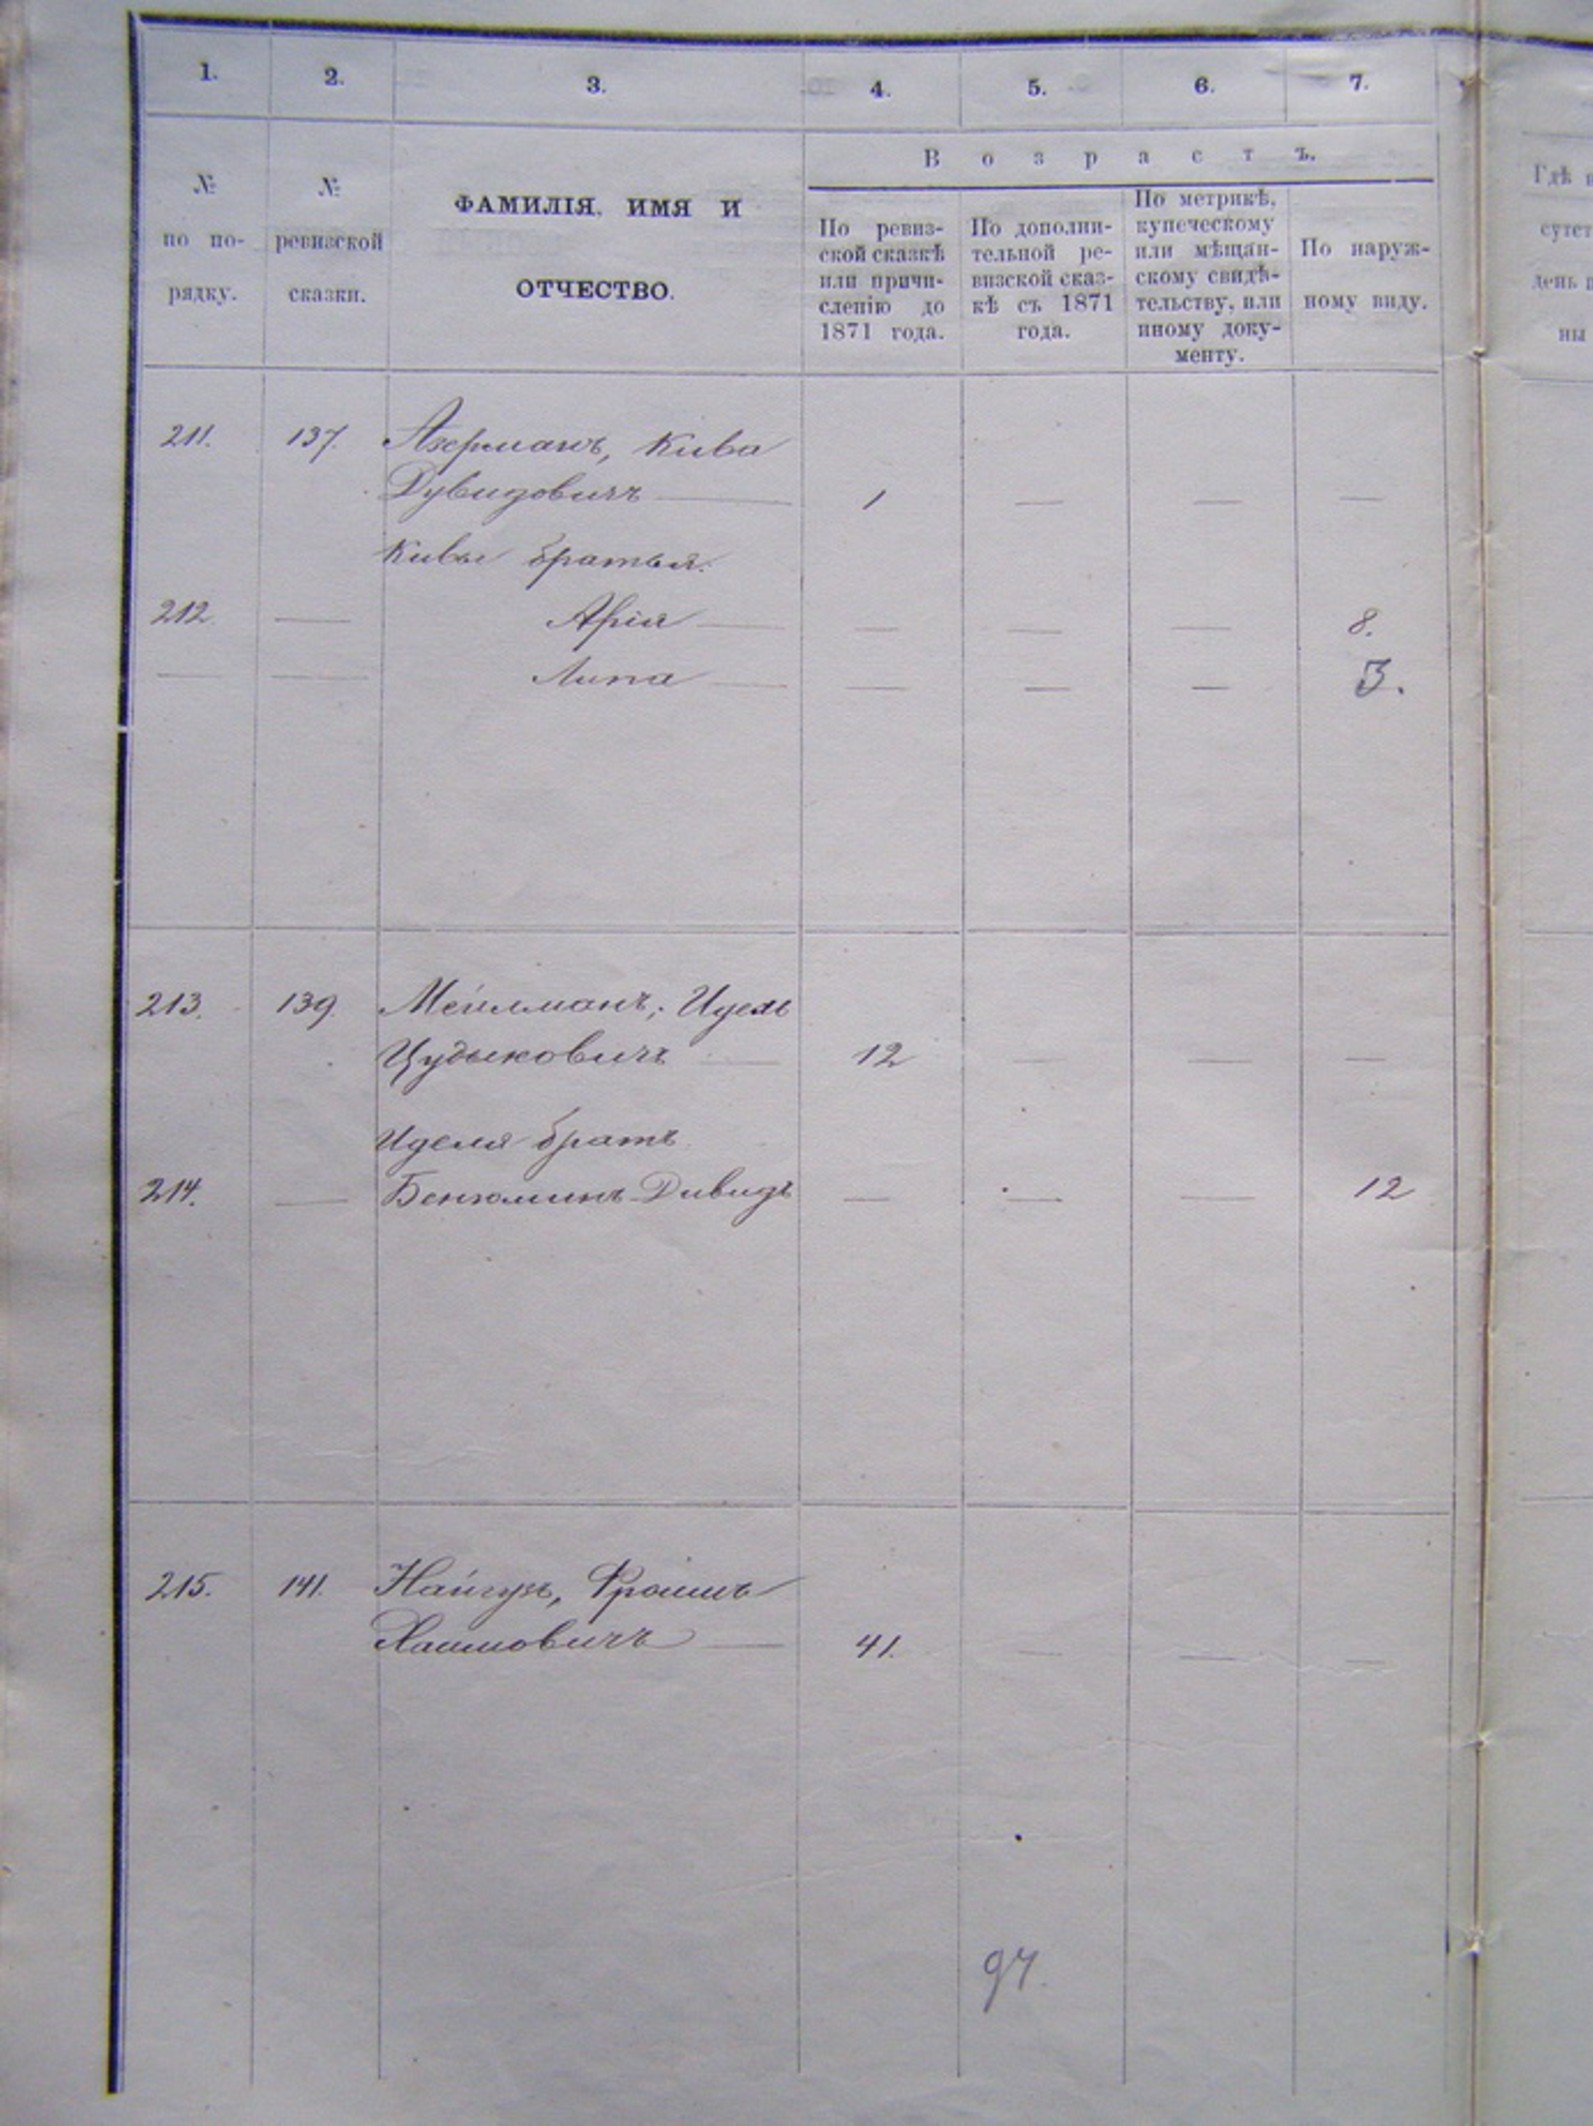 1. 2. 3. 4. 5. 6. 7.
№ по по- рядку.
№ ревизской сказки.
ФАМИЛІЯ, ИМЯ И
ОТЧЕСТВО.
Возрастъ.
По ревиз-
ской сказкѣ
или причи-
сленію до
1871 года.
По дополни-
тельной ре-
визской сказ-
кѣ съ 1871
года.
По метрикѣ,
купеческому
или мѣщан-
скому свидѣ-
тельству, или
иному доку-
менту.
По наруж-
ному виду.
Гдѣ
сутст
день
ны
211. 137. Азерманъ, Кива
Дувидовичъ — 1 — — —
Кивы братья:
212. — Арія — — — — 8.
— — Липа — — — — 3.
213. 139. Мейлманъ, Идель
Цудыковичъ — 12 — — —
Иделя братъ
214. — Бенюминъ-Дивидъ — — — 12
215. 141. Найгузъ, Фроимъ
Хаимовичъ — 41. — — —
97.